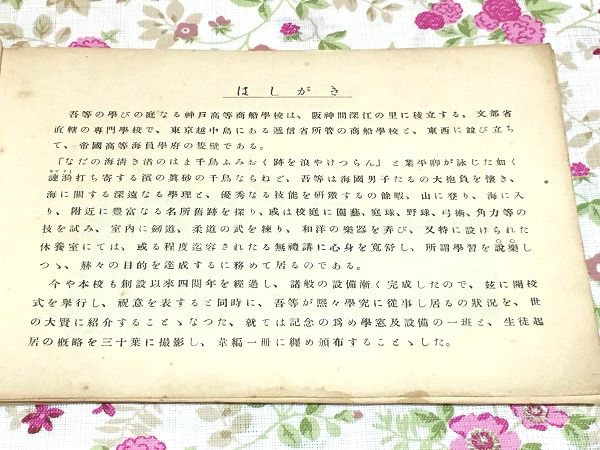 はしがき
吾等の學びの庭なる神戸高等商船學校は、阪神間深江の里に稜立する、文部省
直轄の專門學校で、東京越中島にある遞信省所管の商船學校と、東西に竝び立ち
て、帝國高等海員學府の隻壁である。
『なだの海清き渚のはま千鳥ふみおく跡を浪やけつらん』と業平卿が詠じた如く
漣漪打ち寄する濱の眞砂の千鳥ならねど、吾等は海國男子たるの大抱負を懷き、
海に關する深遠なる學理と、優秀なる技能を研鑽するの餘暇、山に登り、海に入
り、附近に豊富なる名所舊跡を探り、或は校庭に園藝、庭球、野球、弓術、角力等の
技を試み、室内に劍道、柔道の武を練り、和洋の樂器を弄び、又特に設けられた
休養室にては、或る程度迄容されたる無禮講に心身を寬舒し、所謂學習を說樂し
つゝ、赫々の目的を達成するに務めて居るのである。
今や本校も創設以來四閲年を經過し、諸般の設備漸く完成したので、玆に開校
式を擧行し、祝意を表すると同時に、吾等が熙々學究に從事し居るの狀況を、世
の大賢に紹介することゝなつた、就ては記念の爲め學窓及設備の一班と、生徒起
居の槪略を三十葉に撮影し、韋編一冊に纒め頒布することゝした。